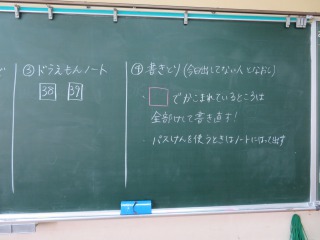 で
③ドラえもんノート
38 39
④書きとり(今日出してない人となおし)
・□でかこまれているところは
全部けして書き直す!
パスけんを使うときはノートにはって出す